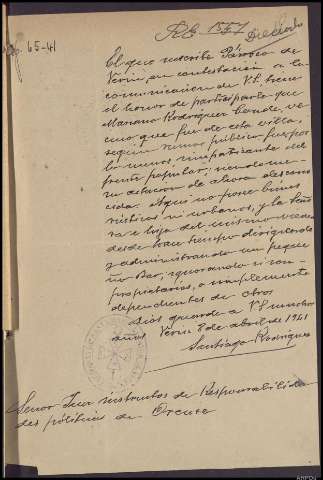 RG 1557
65-41
El que suscribe Párroco de
Verin, en contestacion a la
comunicacion de V.S. tiene
el honor de participarle que
Mariano Rodriguez Conde, ve
cino que fué de esta villa,
segun rumor público fué por
lo menos simpatizante del
frente popular, siendo su
actuacion de ahora descono
cida. Aqui no posee bienes
rústicos ni urbanos, y la Seño
ra e hija del mismo vienen
desde hace tiempo dirigiendo
y administrando un peque
ño Bar, ignorando si son
propietarias, o simplemente
dependientes de otros
Dios guarde a V.S. muchos
años Verin 8 de abril de 1941
Santiago Rodriguez
Señor Juez instructor de Responsabilida
des políticas de Orense